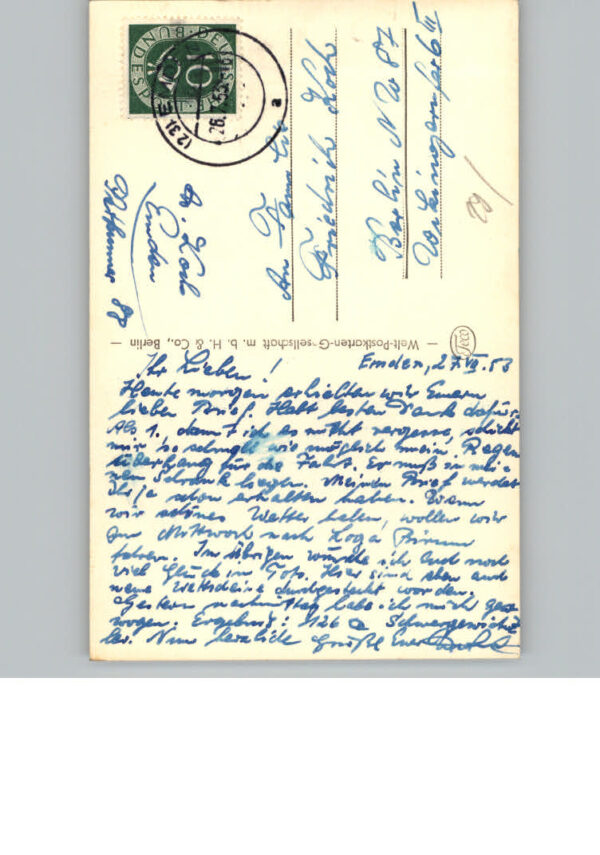 DEUTSCHE BUNDESPOST
10
(23) EMDEN
a
An Familie
Friedrich Koch
Berlin NW 87
29
G. Koch
Emden
— Welt-Postkarten-Gesellschaft m. b. H. & Co., Berlin —
Emden, 27.VII.53
Ihr Lieben!
Heute morgen erhielten wir Euern
lieben Brief. Habt besten Dank dafür.
Als 1., damit ich es nicht vergesse, schickt
mir so schnell wie möglich mein Regen
überhang für die Fahrt. Er muß in mei-
nem Schrank liegen. Meinen Brief werdet
Ihr ja schon erhalten haben. Wenn
wir schönes Wetter haben, wollen wir
am Mittwoch nach Loga
fahren. Im übrigen wünsche ich Euch noch
viel Glück im Toto. Hier sind eben auch
neue Wettscheine durchgesteckt worden.
Gestern nachmittag habe ich mich gew
wogen. Ergebnis: 126 Schwergewicht
ler. Nun herzliche Grüße Euer